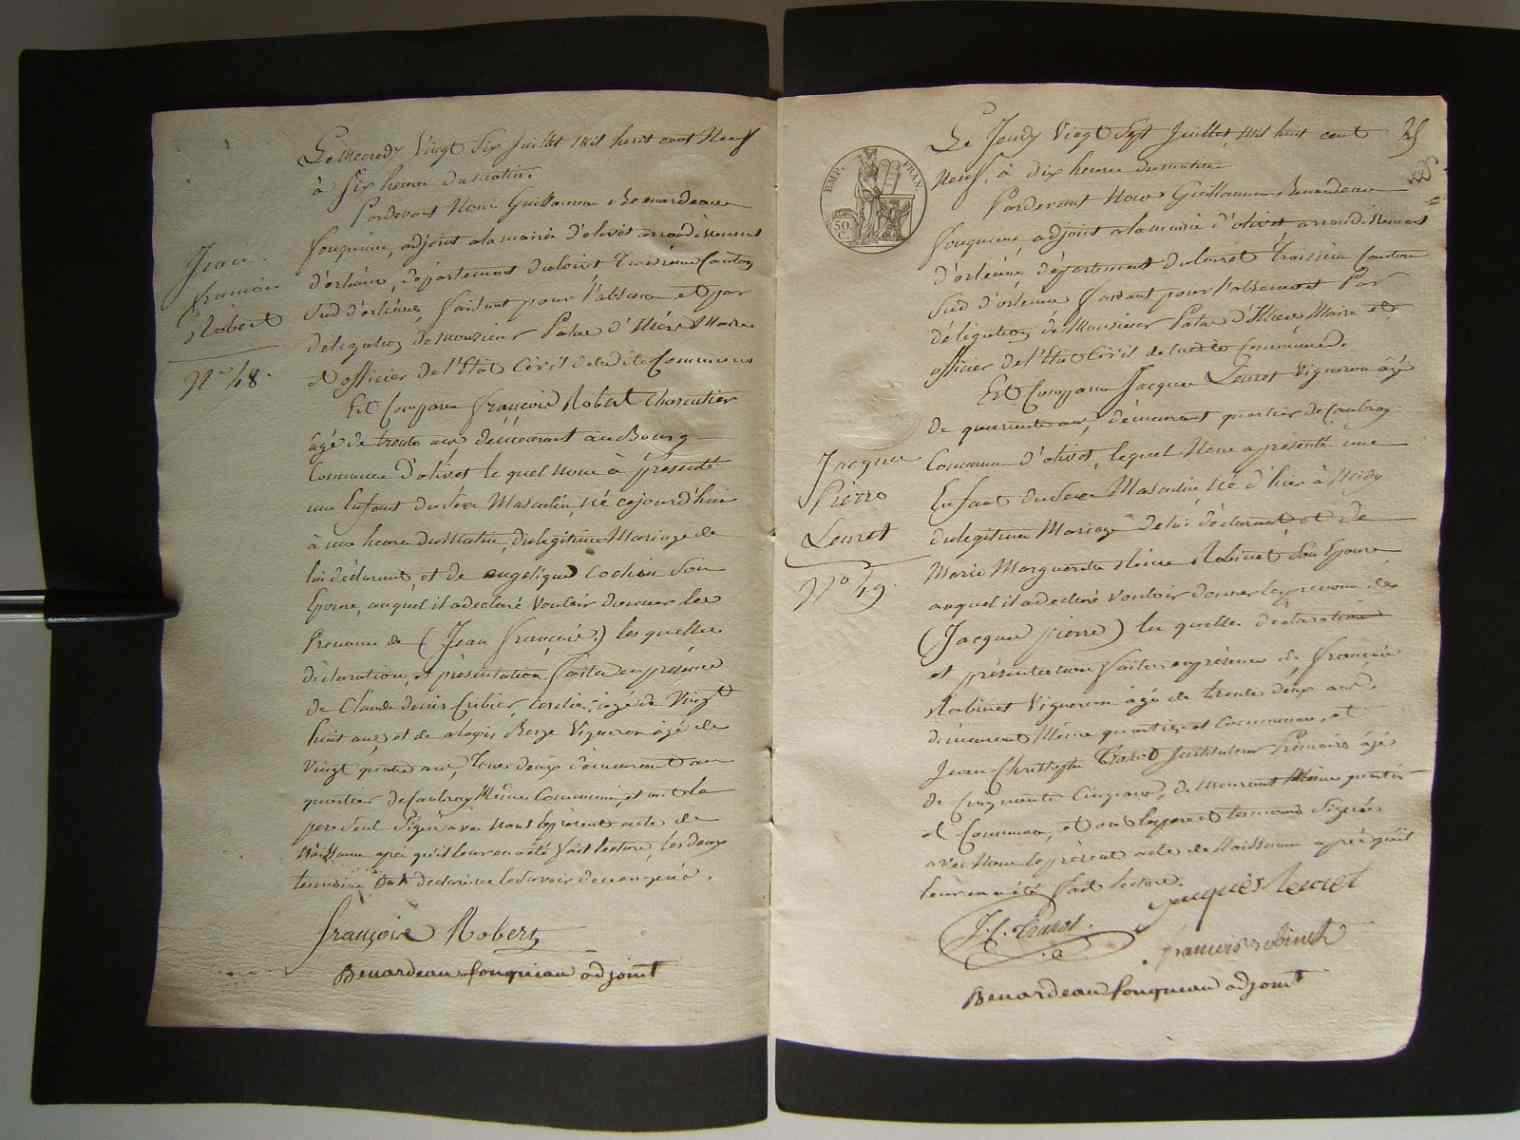 Jean
françois
Robert
N° 48.
Le mercredy Vingt Six Juillet mil huit cent Neuf
à Six heures du matin.
Pardevant Nous Guillaume Benardeau
fouqueau, adjoint a la mairie d'olivet arrondissement
d'orléans, département du loiret troisième Canton
Sud d'orléans, faisant pour l'absence et par
délégation de Monsieur Maire
et officier de l'Etat Civil de la dite Commune
Est Comparu françois Robert Charcutier
âgé de trente ans demeurant au Bourg
Commune d'olivet lequel nous à présenté
un Enfant du Sexe Masculin, né cejourd'hui
à une heure du Matin, du légitime Mariage de
lui déclarant, et de angelique cochin Son
Epouse, auquel il a declaré vouloir donner les
Prenoms de (Jean françois.) les quelles
déclaration, et présentation faites en présence
de Claude denis âgé de Vingt
huit ans, et de Vigneron âgé de
Vingt quatre ans, Tous deux demeurant au
quartier de Caubray Même Commune, et ont le
pere Seul Signé avec nous le present acte de
Naissance après qu'il leur en a été fait lecture, les deux
temoins ont declaré ne le savoir de ce enquis.
françois Robert
Benardeau fouqueau adjoint
EMP. FRAN.
50
C.
25
Jacques
Pierre
Leuret
N° 49
Le Jeudy Vingt Sept Juillet mil huit cent
Neuf, à dix heures du matin
Pardevant Nous Guillaume Benardeau
fouqueau, adjoint a la mairie d'olivet arrondissement
d'orléans, département du loiret troisième Canton
Sud d'orléans faisant pour l'absence et Par
délégation de Monsieur Maire et
officier de l'Etat Civil de la dite Commune.
Est Comparu Jacques Leuret Vigneron âgé
de quarante ans, demeurant quartier de Caubray
Commune d'olivet, lequel Nous a présenté un
Enfant du Sexe Masculin, né d'hier à Midy
du légitime Mariage de lui déclarant et de
Marie Marguerite Robinet Son Epouse
auquel il a declaré vouloir donner les prenoms de
(Jacques pierre) les quelles déclaration
et présentation faites en présence de françois
Robinet Vigneron âgé de trente deux ans,
demeurant Même quartier et Commune, et
Jean Christophe Instituteur Primaire âgé
de Cinquante Cinq ans, demeurant Même quartier
et Commune, et ont le pere et temoins Signés
avec Nous le présent acte de Naissance après qu'il
leur en a été fait lecture.
Jacques Leuret
J. C.
francois robinet
Benardeau fouqueau adjoint